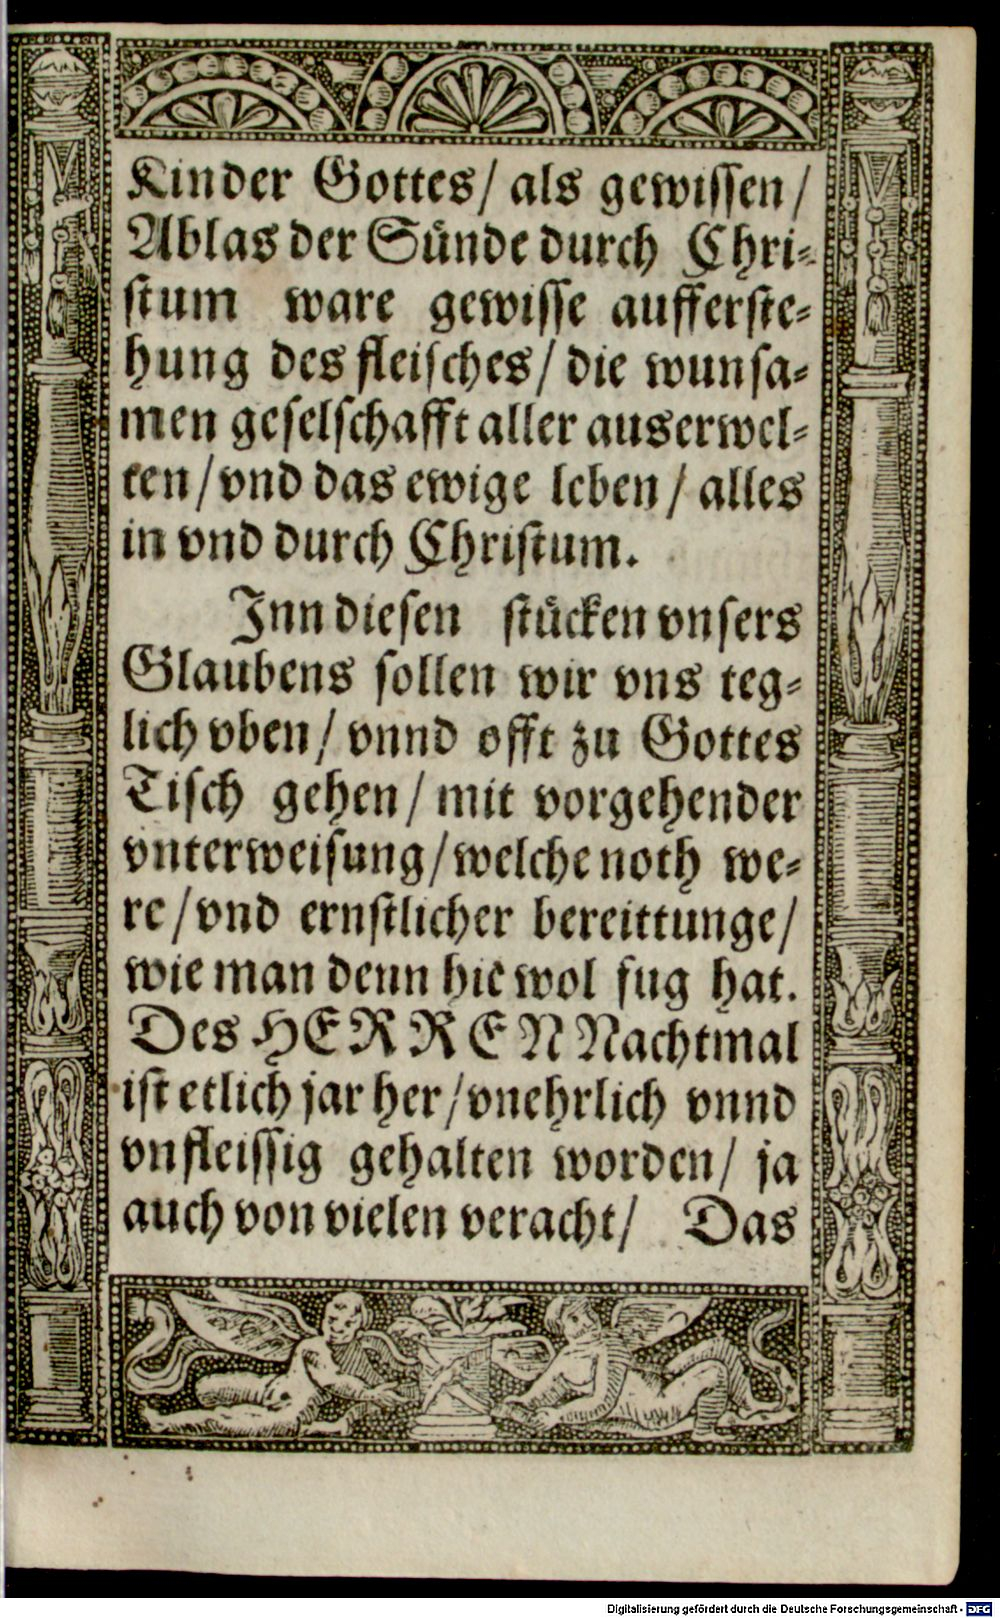 Kinder Gottes/ als gewissen/
Ablas der Sünde durch Chri⸗
stum ware gewisse aufferste⸗
hung des fleisches/ die wunsa⸗
men geselschafft aller auserwel⸗
ten/ vnd das ewige leben/ alles
in vnd durch Christum.
Inn diesen stücken vnsers
Glaubens sollen wir vns teg⸗
lich vben/ vnnd offt zu Gottes
Tisch gehen/ mit vorgehender
vnterweisung/ welche noth we⸗
re/ vnd ernstlicher bereittunge/
wie man denn hie wol fug hat.
Des HERREN Nachtmal
ist etlich jar her/ vnehrlich vnnd
vnfleissig gehalten worden/ ja
auch von vielen veracht/ Das
Digitalisierung gefördert durch die Deutsche Forschungsgemeinschaft - DFG